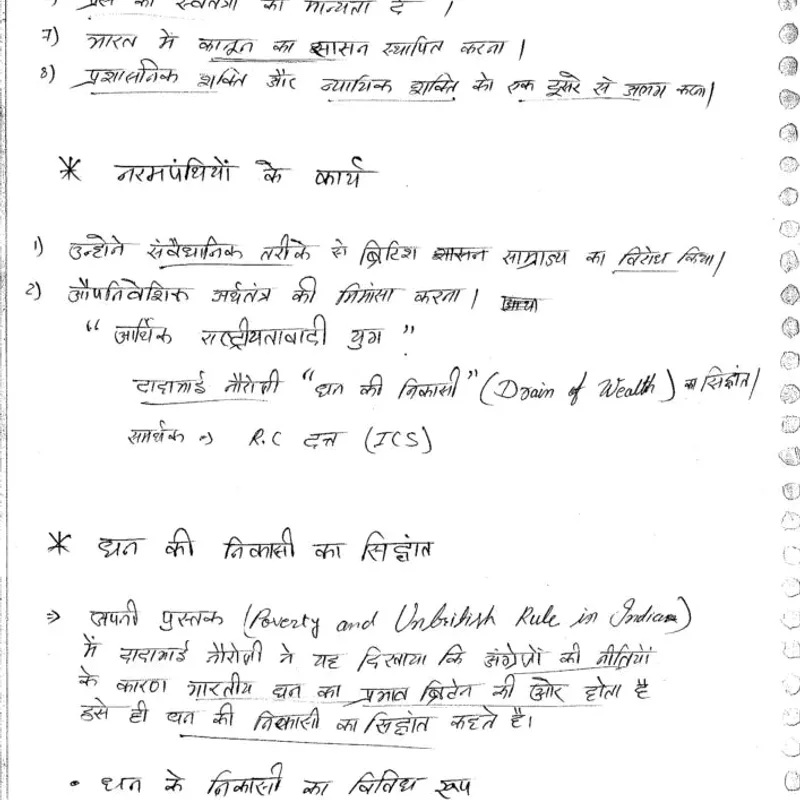 प्रेस की स्वतंत्रता को मान्यता दे ।
7) भारत में कानून का सासन स्थापित करना ।
8) प्रशासनिक शक्ति और न्यायिक शक्ति को एक दूसरे से अलग करना।
* नरमपंथियों के कार्य
1) उन्होने संवैधानिक तरीके से ब्रिटिश सासन साम्राज्य का विरोध किया।
2) औपनिवेशिक अर्थतंत्र की मिमांसा करना ।
“आर्थिक राष्ट्रीयतावादी युग”
दादाभाई नौरोजी “धन की निकासी” (Drain of Wealth) का सिद्धांत।
समर्थक => R.C दत्त (ICS)
* धन की निकासी का सिद्धांत
=> अपनी पुस्तक (Poverty and Unbritish Rule in India)
में दादाभाई नौरोजी ने यह दिखाया कि अंग्रेजों की नीतियों
के कारण भारतीय धन का प्रभाव ब्रिटेन की ओर होता है
इसे ही धन की निकासी का सिद्धांत कहते है।
• धन के निकासी का विविध रूप